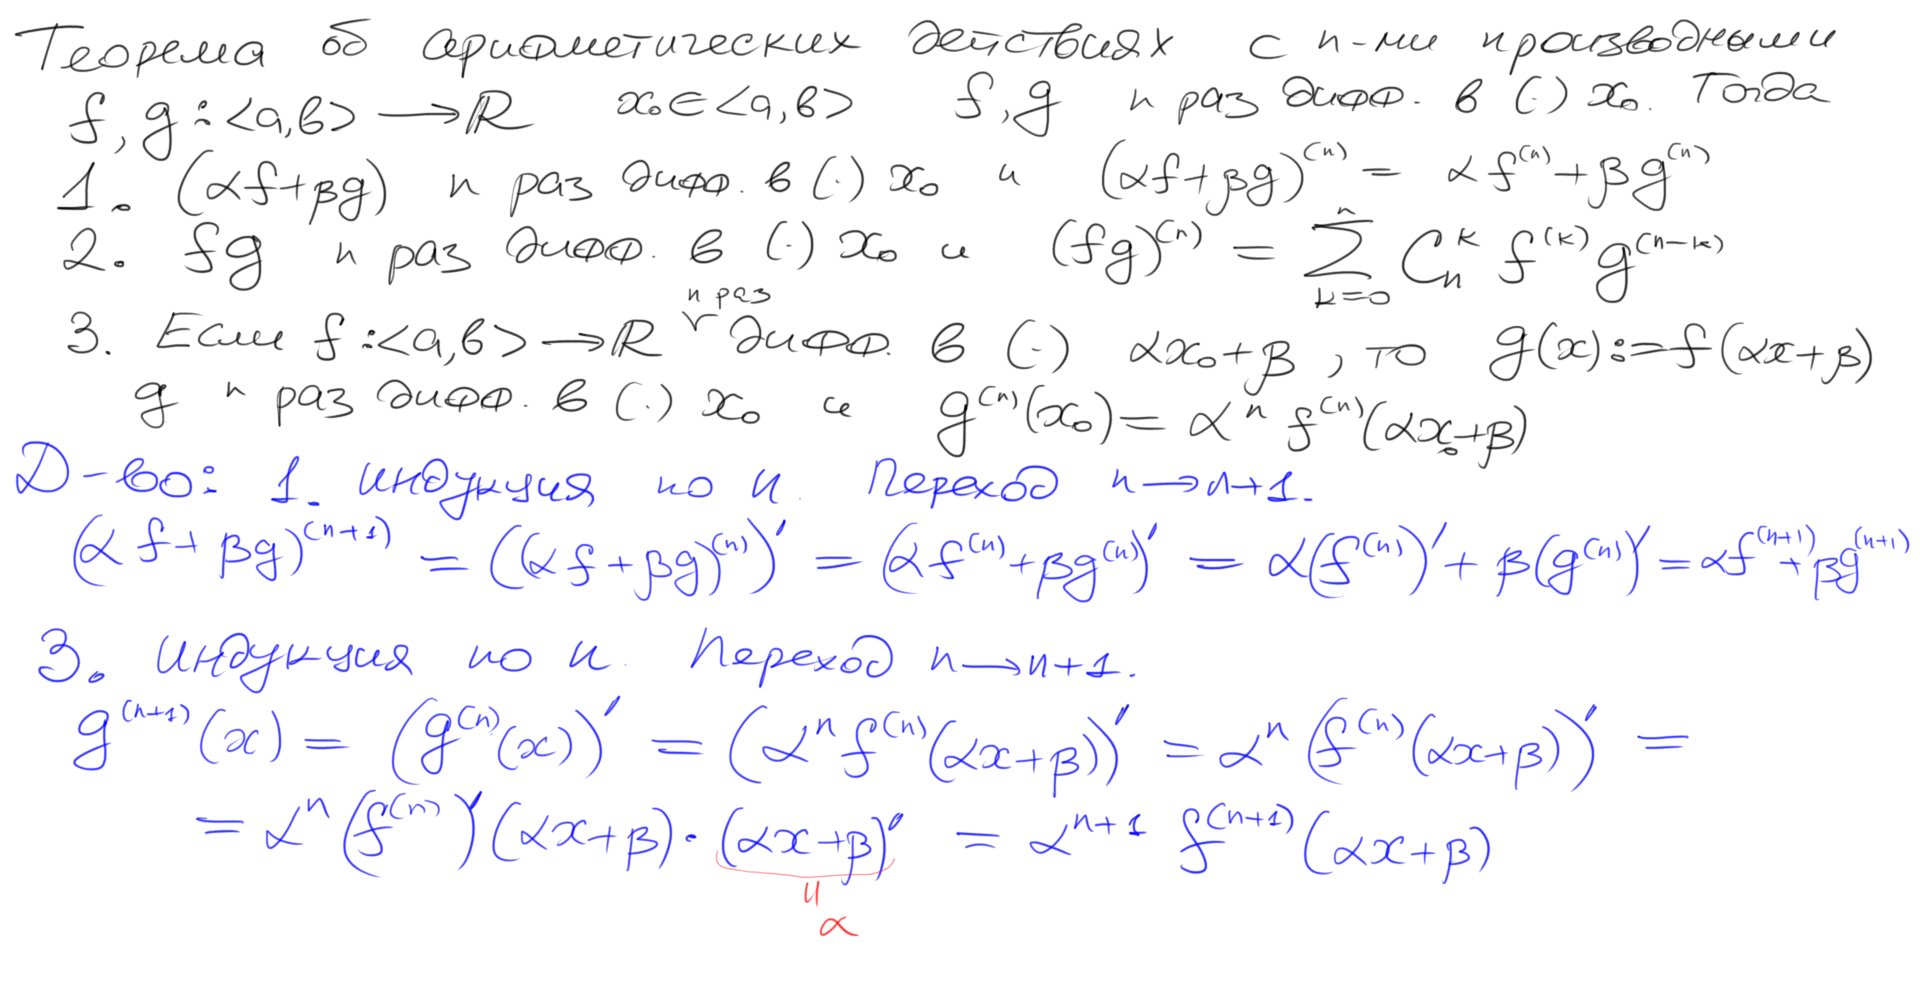 Теорема об арифметических действиях с n-ми производными
f, g : <a, b> → ℝ x₀ ∈ <a, b> f, g n раз дифф. в (·) x₀. Тогда
1. (αf + βg) n раз дифф. в (·) x₀ и (αf + βg)⁽ⁿ⁾ = αf⁽ⁿ⁾ + βg⁽ⁿ⁾
2. fg n раз дифф. в (·) x₀ и (fg)⁽ⁿ⁾ = \sum_{k=0}^{n} C_n^k f^{(k)} g^{(n-k)}
3. Если f : <a, b> → ℝ n раз дифф. в (·) αx₀ + β, то g(x) := f(αx + β)
g n раз дифф. в (·) x₀ и g⁽ⁿ⁾(x₀) = αⁿ f⁽ⁿ⁾(αx₀ + β)
Д-во: 1. индукция по n. Переход n → n+1.
(αf + βg)⁽ⁿ⁺¹⁾ = ((αf + βg)⁽ⁿ⁾)' = (αf⁽ⁿ⁾ + βg⁽ⁿ⁾)' = α(f⁽ⁿ⁾)' + β(g⁽ⁿ⁾)' = αf⁽ⁿ⁺¹⁾ + βg⁽ⁿ⁺¹⁾
3. индукция по n. Переход n → n+1.
g⁽ⁿ⁺¹⁾(x) = (g⁽ⁿ⁾(x))' = (αⁿ f⁽ⁿ⁾(αx + β))' = αⁿ (f⁽ⁿ⁾(αx + β))' =
= αⁿ (f⁽ⁿ⁾)'(αx + β) · (αx + β)' = αⁿ⁺¹ f⁽ⁿ⁺¹⁾(αx + β)
=
α